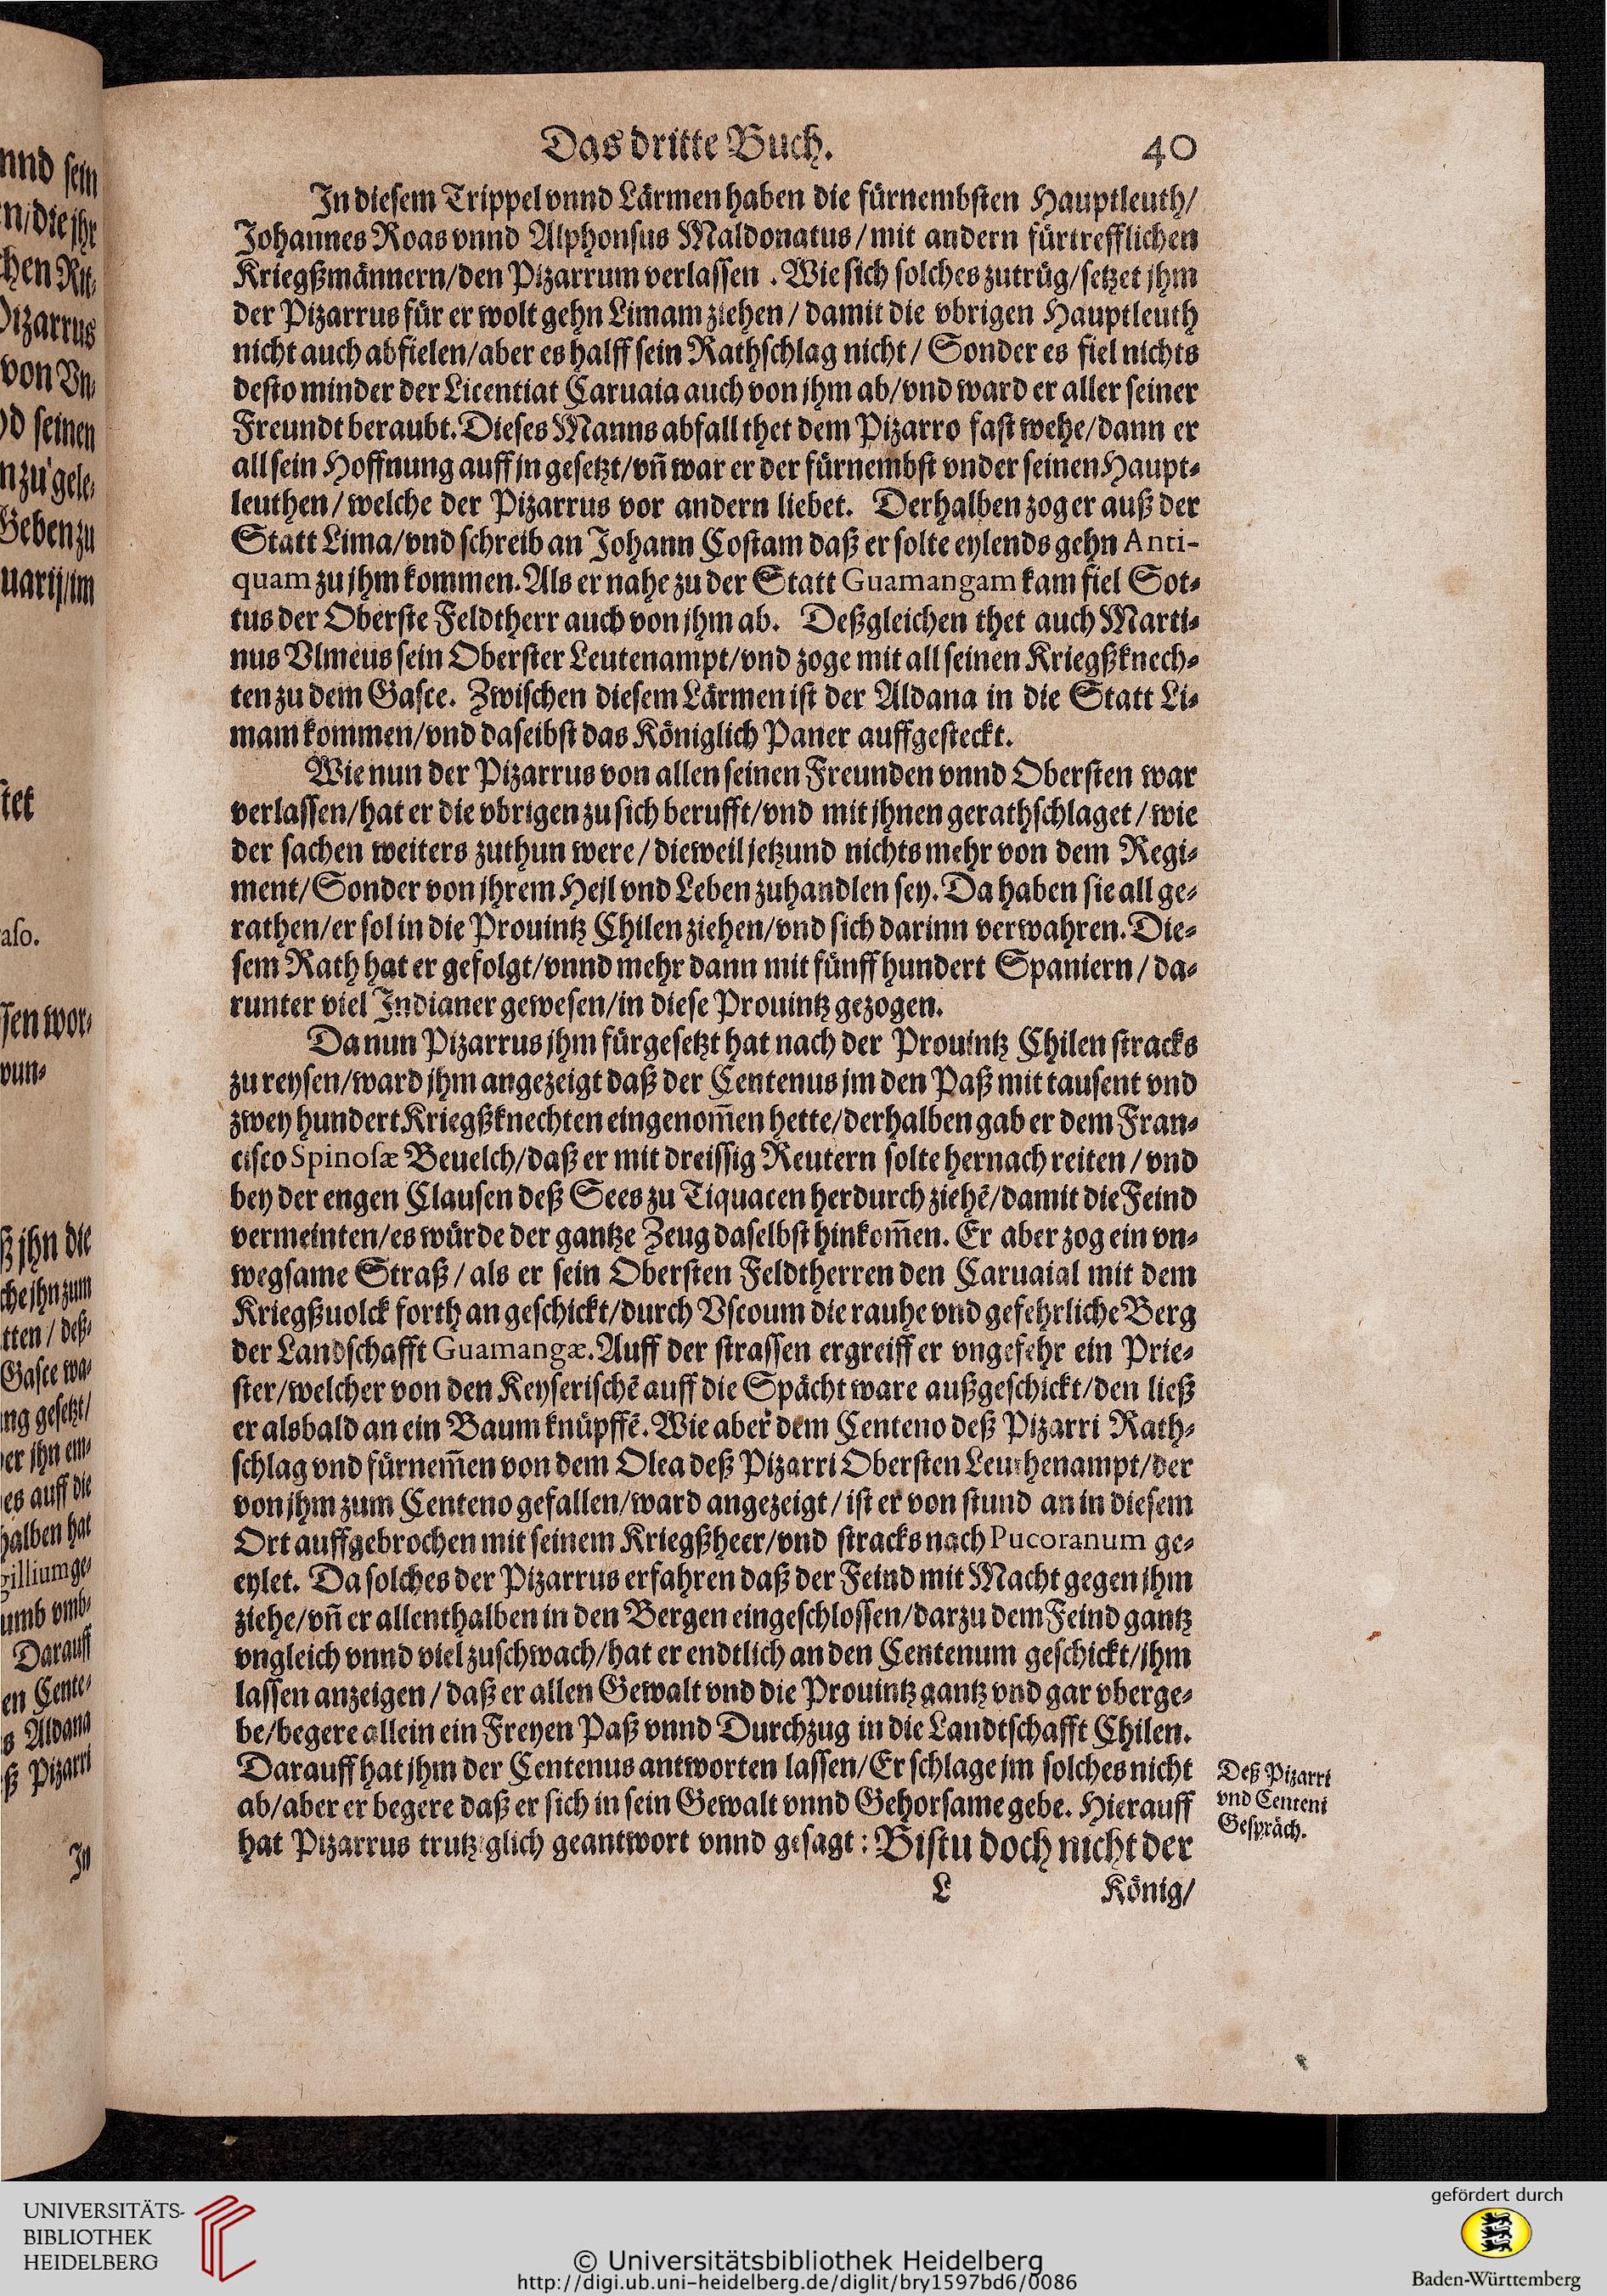 Das dritte Buch. 40
In diesem Trippel vnnd Lärmen haben die fürnembsten Hauptleuth/
Johannes Roas vnnd Alphonsus Maldonatus/mit andern fürtrefflichen
Kriegßmännern/den Pizarrum verlassen. Wie sich solches zutrüg/setzet jhm
der Pizarrus für er wolt gehn Limam ziehen/damit die vbrigen Hauptleuth
nicht auch abfielen/aber es halff sein Rathschlag nicht/Sonder es fiel nichts
desto minder der Licentiat Caruaia auch von jhm ab/vnd ward er aller seiner
Freundt beraubt. Dieses Manns abfall thet dem Pizarro fast wehe/dann er
all sein Hoffnung auff jn gesetzt/vñ war er der fürnembst vnder seinen Haupt-
leuthen/welche der Pizarrus vor andern liebet. Derhalben zog er auß der
Statt Lima/vnd schreib an Johann Costam daß er solte eylends gehn Anti-
quam zu jhm kommen. Als er nahe zu der Statt Guamangam kam fiel Sot-
tus der Oberste Feldtherr auch von jhm ab. Deßgleichen thet auch Marti-
nus Vlmeus sein Oberster Leutenampt/vnd zoge mit all seinen Kriegßknech-
ten zu dem Gasce. Zwischen diesem Lärmen ist der Aldana in die Statt Li-
mam kommen/vnd daselbst das Königlich Paner auffgesteckt.
Wie nun der Pizarrus von allen seinen Freunden vnnd Obersten war
verlassen/hat er die vbrigen zu sich berufft/vnd mit jhnen gerathschlaget/wie
der sachen weiters zuthun were/dieweil jetzund nichts mehr von dem Regi-
ment/Sonder von jhrem Heil vnd Leben zuhandlen sey. Da haben sie all ge-
rathen/er sol in die Prouintz Chilen ziehen/vnd sich darinn verwahren. Die-
sem Rath hat er gefolgt/vnnd mehr dann mit fünff hundert Spaniern/da-
runter viel Indianer gewesen/in diese Prouintz gezogen.
Da nun Pizarrus jhm fürgesetzt hat nach der Prouintz Chilen stracks
zu reysen/ward jhm angezeigt daß der Centenus jm den Paß mit tausent vnd
zwey hundert Kriegßknechten eingenom̃en hette/derhalben gab er dem Fran-
cisco Spinosæ Beuelch/daß er mit dreissig Reutern solte hernach reiten/vnd
bey der engen Clausen deß Sees zu Tiquacen herdurch ziehẽ/damit die Feind
vermeinten/es würde der gantze Zeug daselbst hinkom̃en. Er aber zog ein vn-
wegsame Straß/als er sein Obersten Feldtherren den Caruaial mit dem
Kriegßuolck forth an geschickt/durch Vscoum die rauhe vnd gefehrliche Berg
der Landschafft Guamangæ. Auff der strassen ergreiff er vngefehr ein Prie-
ster/welcher von den Keyserischẽ auff die Spächt ware außgeschickt/den ließ
er alsbald an ein Baum knüpffẽ. Wie aber dem Centeno deß Pizarri Rath-
schlag vnd fürnem̃en von dem Olea deß Pizarri Obersten Leuthenampt/der
von jhm zum Centeno gefallen/ward angezeigt/ist er von stund an in diesem
Ort auffgebrochen mit seinem Kriegßheer/vnd stracks nach Pucoranum ge-
eylet. Da solches der Pizarrus erfahren daß der Feind mit Macht gegen jhm
ziehe/vñ er allenthalben in den Bergen eingeschlossen/darzu dem Feind gantz
vngleich vnnd viel zuschwach/hat er endtlich an den Centenum geschickt/jhm
lassen anzeigen/daß er allen Gewalt vnd die Prouintz gantz vnd gar vberge-
be/begere allein ein Freyen Paß vnnd Durchzug in die Landtschafft Chilen.
Darauff hat jhm der Centenus antworten lassen/Er schlage jm solches nicht
ab/aber er begere daß er sich in sein Gewalt vnnd Gehorsame gebe. Hierauff
hat Pizarrus trutziglich geantwort vnnd gesagt: Bistu doch nicht der
Deß Pizarri
vnd Centeni
Gespräch.
L König/
nnd sein
n/die jhr
chen Rit-
Pizarrus
von Vn-
nd seinen
n zu gele-
Geben zu
uarij/im
aso.
ssen wor-
vun-
ß jhn die
che jhn zum
tten/deß-
Gasce wa-
ng gesetzt/
er jhn em-
es auff die
halben hat
gillium ge-
umb vmb-
Darauff
en Cente-
s Aldana
ß Pizarri
In
UNIVERSITÄTS-
BIBLIOTHEK
HEIDELBERG
© Universitätsbibliothek Heidelberg
http://digi.ub.uni-heidelberg.de/diglit/bry1597bd6/0086
gefördert durch
Baden-Württemberg